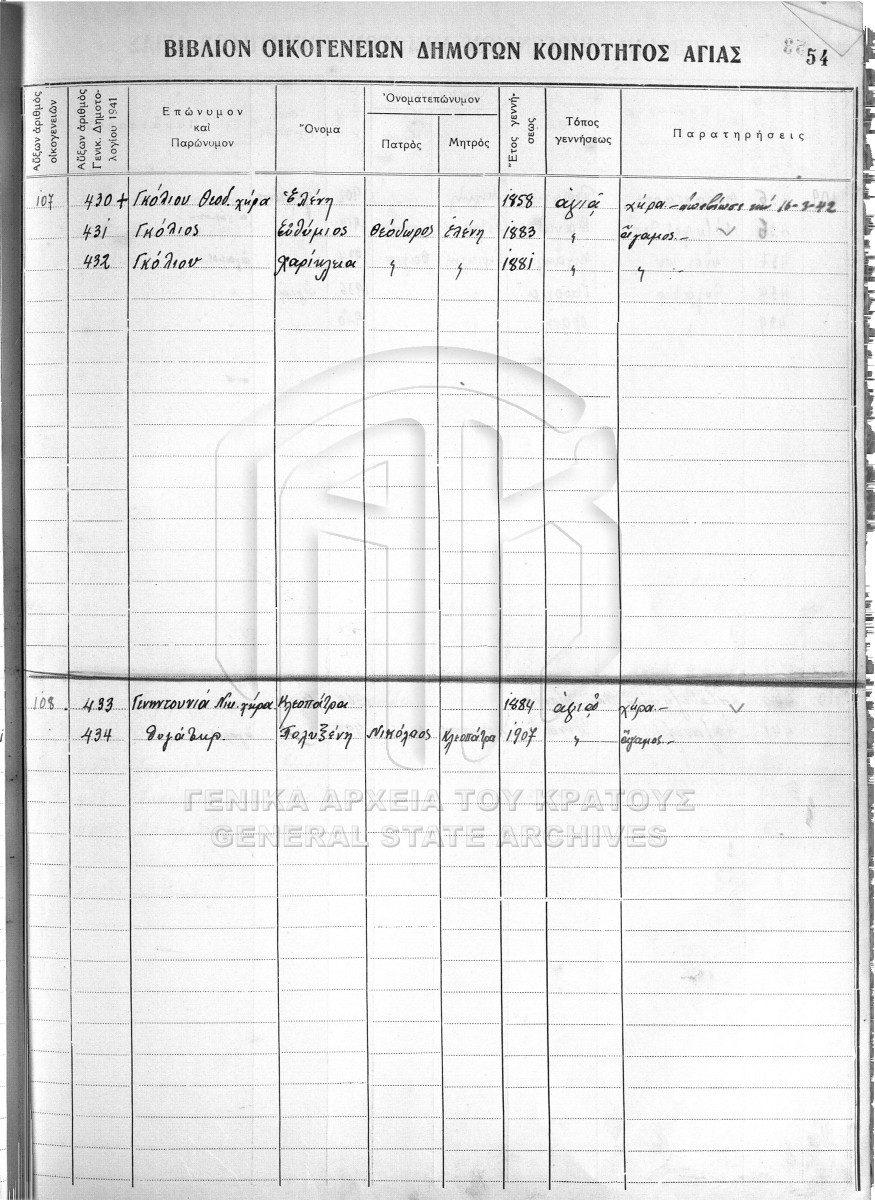 ΒΙΒΛΙΟΝ ΟΙΚΟΓΕΝΕΙΩΝ ΔΗΜΟΤΩΝ ΚΟΙΝΟΤΗΤΟΣ ΑΓΙΑΣ 54
Αὔξων ἀριθμός οἰκογενειῶν
Αὔξων ἀριθμός Γενικ. Δημοτολογίου 1941
Ἐπώνυμον καί Παρώνυμον
Ὄνομα
Ὀνοματεπώνυμον
Πατρὸς
Μητρὸς
Ἔτος γεννήσεως
Τόπος γεννήσεως
Παρατηρήσεις
107 430 + Γκόλιου Θεοδ. χήρα Ἑλένη 1858 ἁγιᾶ χήρα - ἀπεβίωσε τήν 16-3-42
431 Γκόλιος Εὐθύμιος Θεόδωρος Ἑλένη 1883 〃 ἄγαμος -
432 Γκόλιου Χαρίκλεια 〃 〃 1881 〃 〃
108. 433 Νικ. χήρα Κλεοπάτρα 1884 ἁγιᾶ χήρα -
434 θυγάτηρ. Πολυξένη Νικόλαος Κλεοπάτρα 1907 〃 ἄγαμος -
ΓΕΝΙΚΑ ΑΡΧΕΙΑ ΤΟΥ ΚΡΑΤΟΥΣ
GENERAL STATE ARCHIVES